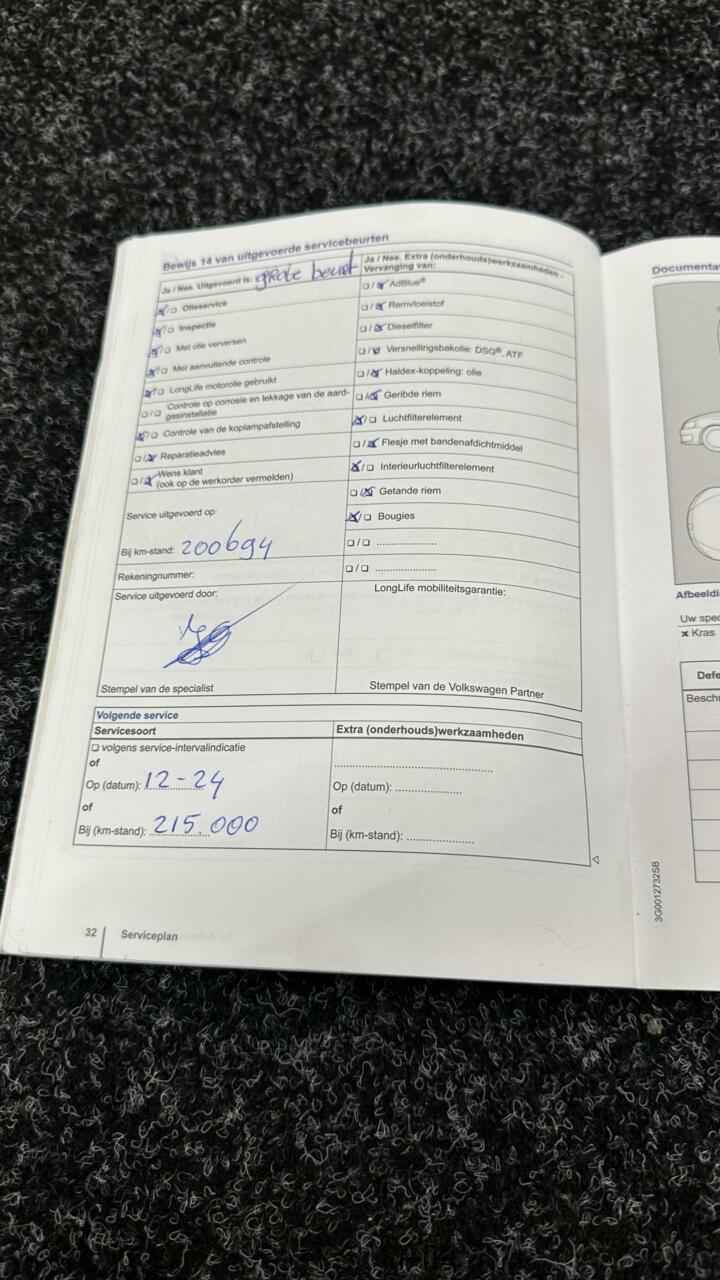 Bewijs 14 van uitgevoerde servicebeurten
Ja / Nee. Uitgevoerd is: grote beurt
☒/☐ Olieservice
☒/☐ Inspectie
☒/☐ Met olie verversen
☒/☐ Met aanvullende controle
☒/☐ LongLife motorolie gebruikt
☐/☐ Controle op corrosie en lekkage van de aard-
gasinstallatie
☒/☐ Controle van de koplampafstelling
☐/☒ Reparatieadvies
☐/☒ Wens klant
(ook op de werkorder vermelden)
Service uitgevoerd op:
Bij km-stand: 200694
Rekeningnummer:
Service uitgevoerd door:
Stempel van de specialist
Ja / Nee. Extra (onderhouds)werkzaamheden -
Vervanging van:
☐/☒ AdBlue®
☐/☒ Remvloeistof
☐/☒ Dieselfilter
☐/☒ Versnellingsbakolie: DSG®, ATF
☐/☒ Haldex-koppeling: olie
☐/☒ Geribde riem
☒/☐ Luchtfilterelement
☐/☒ Flesje met bandenafdichtmiddel
☒/☐ Interieurluchtfilterelement
☐/☒ Getande riem
☒/☐ Bougies
☐/☐ ....................
☐/☐ ....................
LongLife mobiliteitsgarantie:
Stempel van de Volkswagen Partner
Volgende service
Servicesoort
☐ volgens service-intervalindicatie
of
Op (datum): 12-24
of
Bij (km-stand): 215.000
Extra (onderhouds)werkzaamheden
..................................................
Op (datum): .....................
of
Bij (km-stand): .....................
32 Serviceplan
3G0012732SB
Documenta
Afbeeldi
Uw spec
× Kras
Defe
Beschr